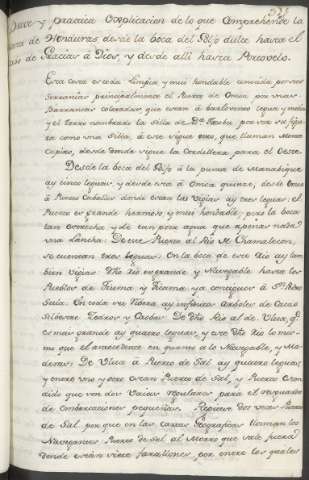 Breve y practica Explicacion de lo que Comprehende la
Costa de Honduras desde la boca del Golfo dulce hasta el
Cabo de Gracias á Dios, y desde alli hasta Portovelo.
Esta costa es toda limpia y mui hondable
Serranias principalmente el Punta de Omoa por unas
Barrancas coloradas que estan á barlovento legua y media
y el Cerro nombrado la Silla de
como una Silla, á este sigue otro, que llaman Monte
Capiro, desde donde sigue la Cordillera para el Oeste.
Desde la boca del Golfo á la punta de Manabique
ay cinco leguas, y desde esta á Omoa quinze, desde Omoa
á Puerto Caballos donde estan las Vigias ay tres leguas: el
Puerto es grande hermoso y mui hondable; pero la boca
tan estrecha y de tan poca agua que apenas
una Lancha. De este Puerto al Rio de Chameleon,
se cuentan tres leguas. En la boca de este Rio ay tam-
bien Vigias. Dho Rio es grande y Navegable hasta los
Pueblos de Tiuma y Ticamo ya contiguos á Sn. Pedro
Sula. En toda su Rivera ay infinitos arboles de Cacao
Silvestre Cedros y Caobas. De dho Rio al de Ulua, qe.
es mas grande ay quatro leguas, y este dho Rio lo mis-
mo que el antecedente en quanto á lo Navegable, y Ma-
deras: De Ulua á Puerto de Sal ay quatro leguas,
y entre uno y otro estan Puerto de Sal, y Puerto Escon-
dido que son dos Caias regulares para el resguardo
de embarcaciones pequeñas. Repitese dos veces Puerto
de Sal por que en las cartas Geograficas llaman los
Navegantes Puerto de Sal al Morro que sale fuera
donde están siete farallones, por entre los quales